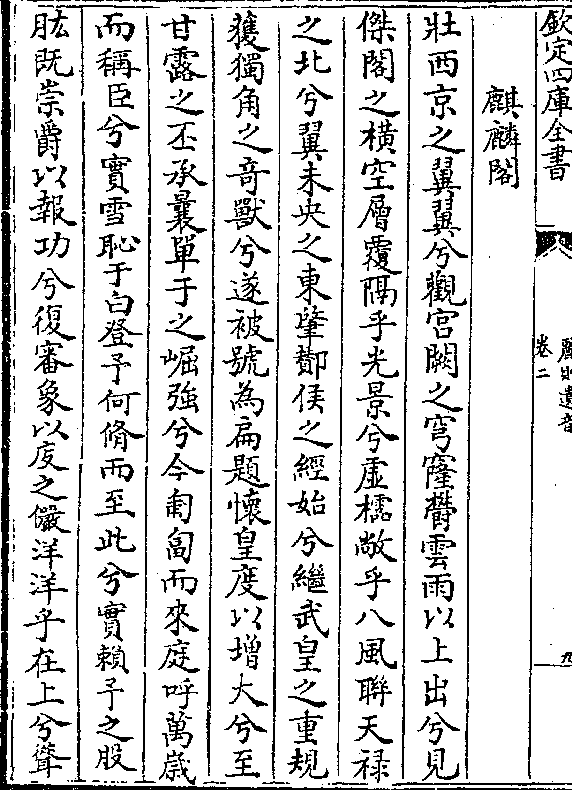 欽定四庫全書
麗則遺音
卷二
九
麒麟閣
壯西京之翼翼兮觀宮闕之穹窿欝雲雨以上出兮見
傑閣之橫空層覆隔乎光景兮虛櫺敞乎八風聨天禄
之北兮翼未央之東肇酇侯之經始兮繼武皇之重規
獲獨角之竒獸兮遂被號為扁題懷皇度以增大兮至
甘露之丕承曩單于之崛強兮今匍匐而來庭呼萬歳
而稱臣兮實雪恥于白登予何脩而至此兮實賴子之股
肱既崇爵以報功兮復審象以度之儼洋洋乎在上兮聳